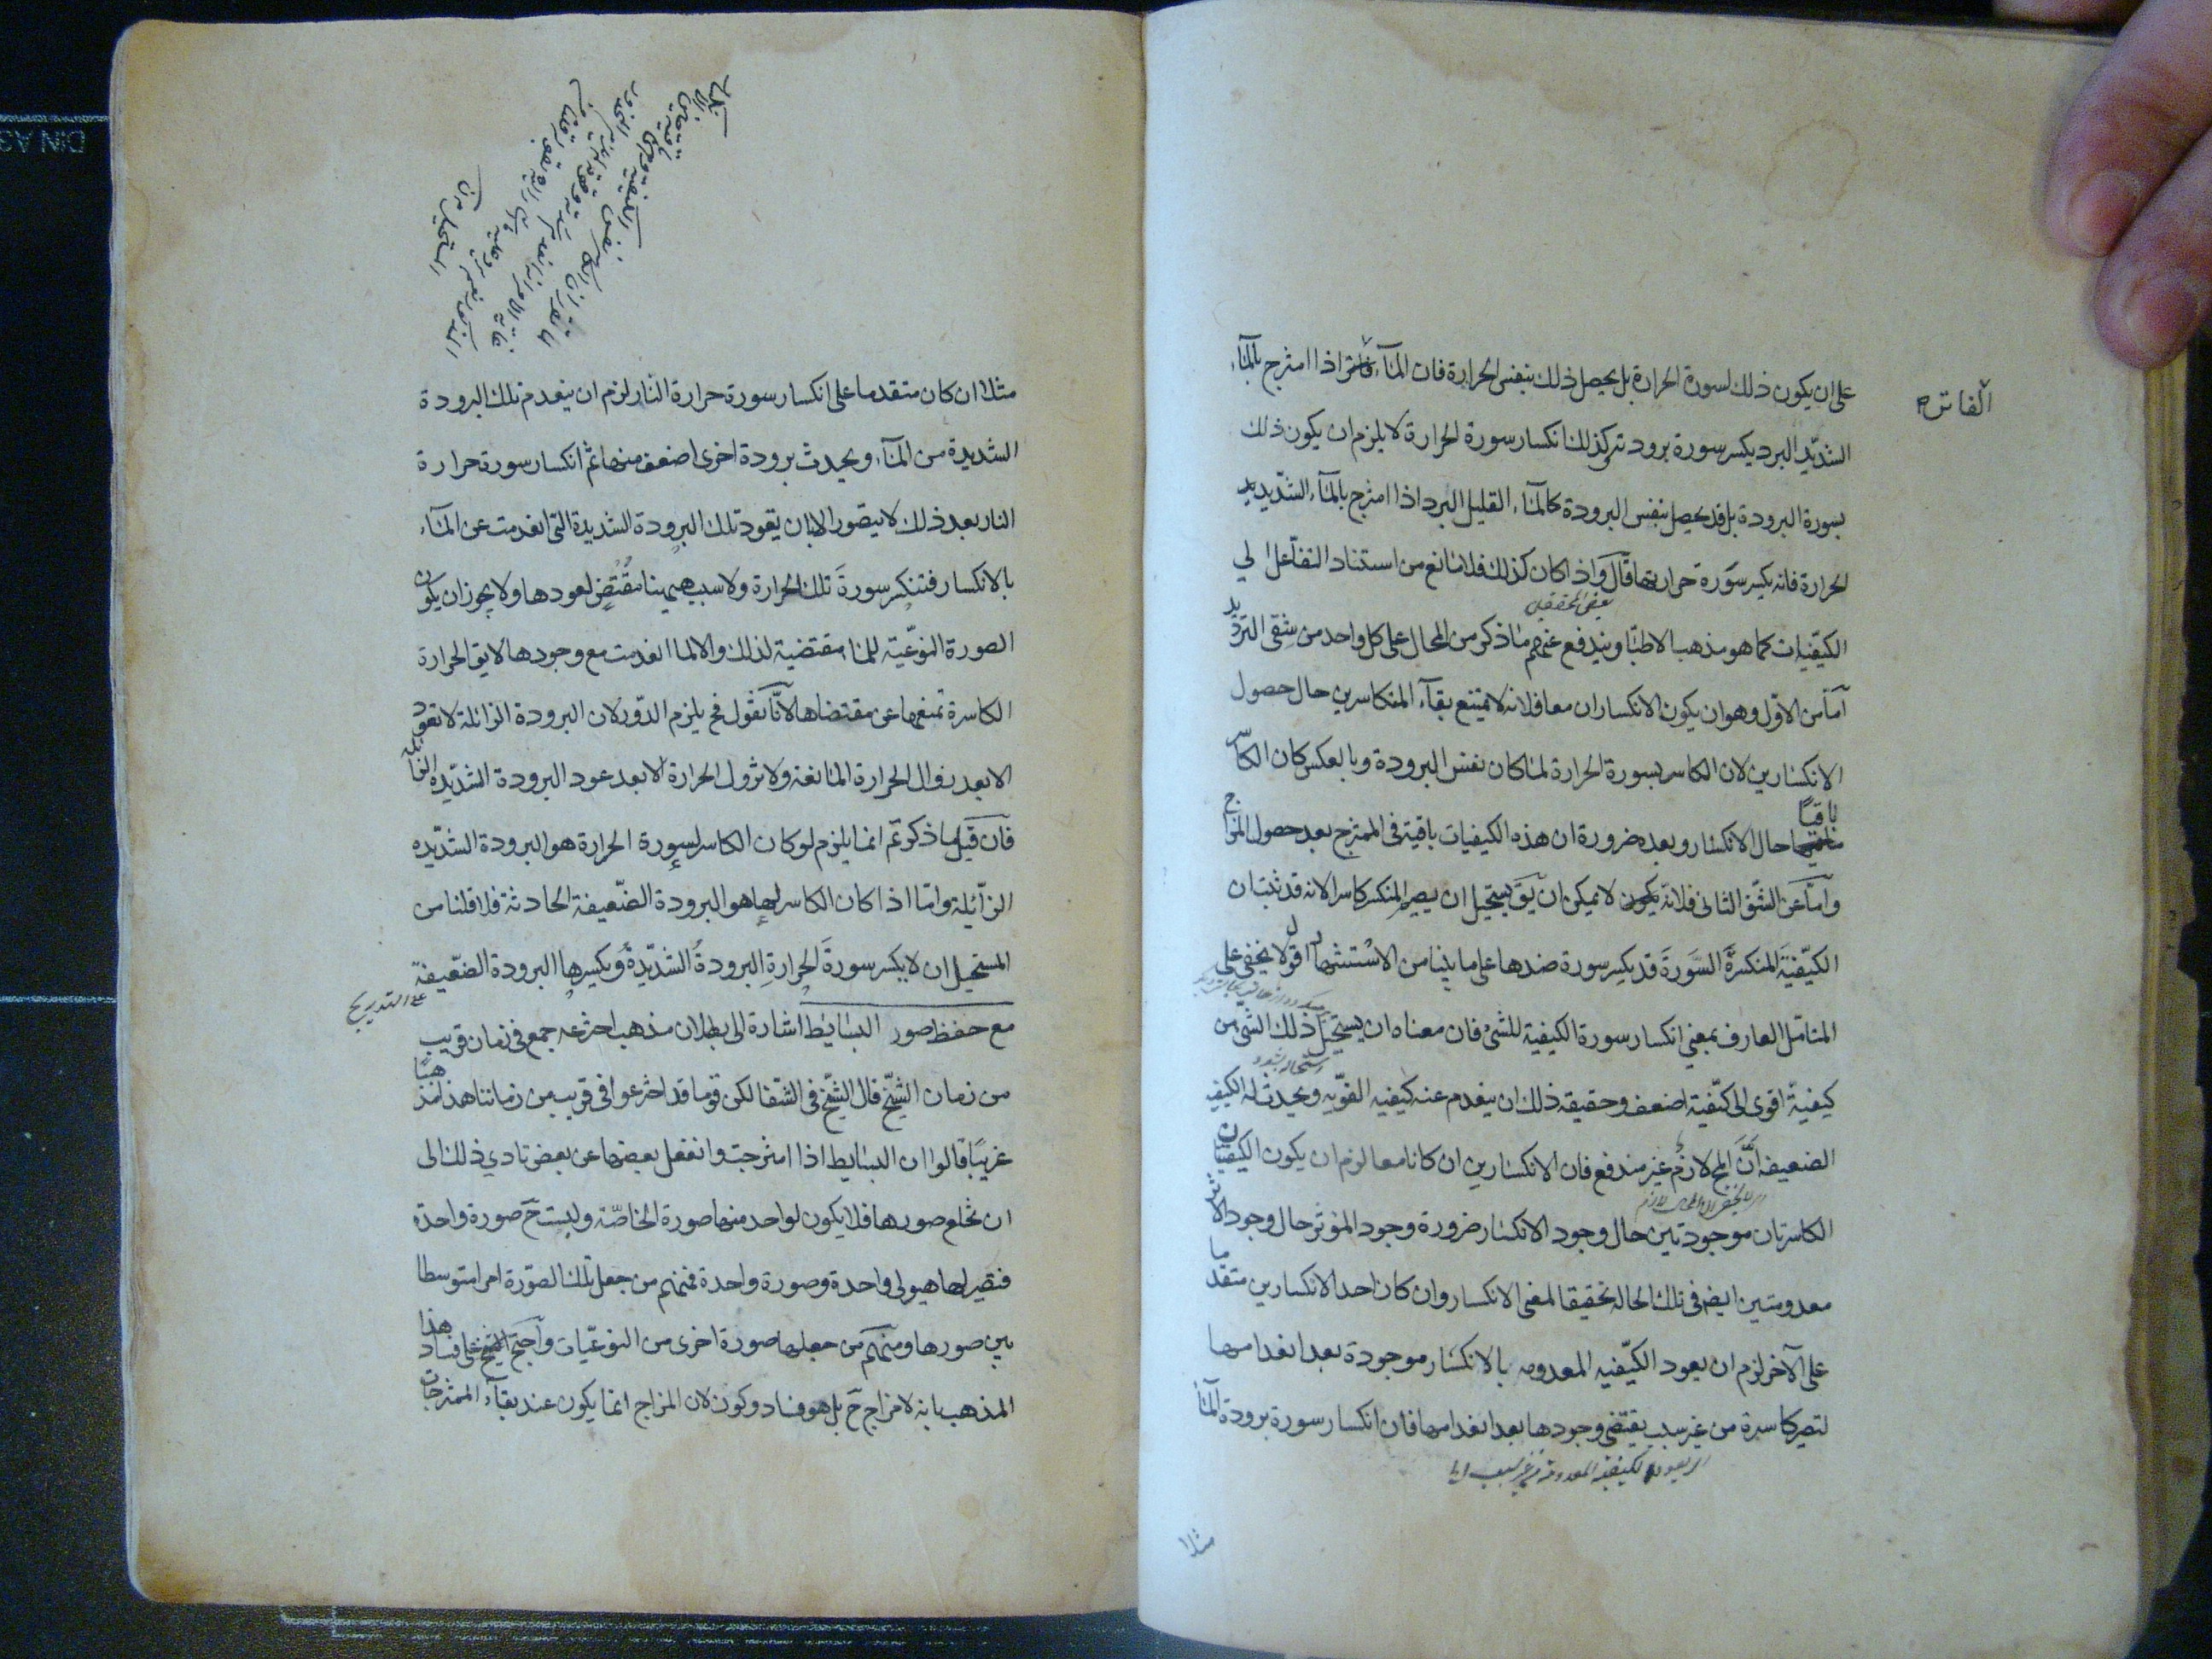 على ان يكون ذلك لسورة الحرارة بل يحصل ذلك بنفس الحرارة فان المآء فاتر اذا امتزج بالمآء
الفاتر
الشديد البرد يكسر سورة برودته كذلك انكسار سورة الحرارة لا يلزم ان يكون ذلك
بسورة البرودة بل قد يحصل بنفس البرودة كالمآء القليل البرد اذا امتزج بالمآء الشديد
الحرارة فانه يكسر سورة حرارتها قال واذا كان كذلك فلا مانع من استناد التفاعل الي
بعض المحققين
الكيفيات كما هو مذهب الاطبا ويندفع عنهم ما ذكر من المحال على كل واحد من شقى الترديد
آما من الاول وهو ان يكون الانكساران معا فلانه لا يمتنع بقآء المتكاسرين حال حصول
الانكسارين لان الكاسر بسورة الحرارة لما كان نفس البرودة وبالعكس كان الكاسر
باقيًا
حال الانكسار وبعده ضرورة ان هذه الكيفيات باقية فى الممتزج بعد حصول المزاج
وآما عن الشق الثانى فلانه لا يمكن ان يق يستحيل ان يصير المنكسر كاسرا لانه قد ثبت ان
الكيفية المنكسرة السورة قد يكسر سورة ضدها على ما بينا من الاستشهاد اقول لا يخفى على
المتامل العارف بمعنى انكسار سورة الكيفية للشئ فان معناه ان يستحيل ذلك الشئ من
استحاله بشود
كيفية اقوى الى كيفية اضعف وحقيقة ذلك ان ينعدم عنه كيفيه القويه ويحدث له الكيفيه
الضعيفه ان المح لازم غير مندفع فان الانكسارين ان كانا معا لزم ان يكون الكيفيتان
الكاسرتان موجودتين حال وجود الانكسار ضرورة وجود المؤثر حال وجود الاثر
معدومتين ايضه فى تلك الحالة تحقيقا لمعنى الانكسار وان كان احد الانكسارين متقدما
على الآخر لزم ان يعود الكيفيه المعدومه بالانكسار موجودة بعد انعدامها
لتصير كاسرة من غير سبب يقتضى وجودها بعد انعدامها فان انكسار سورة برودة المآء
مثلا
مثلا ان كان متقدما على انكسار سورة حرارة النار لزم ان ينعدم تلك البرودة
الشديدة من المآء ويحدث برودة اخرى اضعف منها ثم انكسار سورة حرارة
النار بعد ذلك لا يتصور الا بان يعود تلك البرودة الشديدة التى انعدمت عن المآء
بالانكسار فتنكسر سورة تلك الحرارة ولا سبب هيهنا مقتض لعودها ولا يجوز ان يكون
الصورة النوعية للمآء مقتضية لذلك والا لما انعدمت مع وجودها لا يق الحرارة
الكاسرة تمنعها عن مقتضاها لآنا نقول فح يلزم الدور لان البرودة الزائلة لا تعود
الا بعد زوال الحرارة المانعة ولا تزول الحرارة الا بعد عود البرودة الشديده الزآئله
فآن قيل ما ذكرتم انما يلزم لو كان الكاسر لسورة الحرارة هو البرودة الشديده
الزآئلة واما اذا كان الكاسر لها هو البرودة الضعيفة الحادثة فلا قلنا من
المستحيل ان لا يكسر سورة الحرارة البرودة الشديدة ويكسرها البرودة الضعيفة
على التدريج
مع حفظ صور البسايط اشارة الى بطلان مذهب اخترعه جمع فى زمان قريب
من زمان الشيخ قال الشيخ فى الشفا لكن قوما قد اخترعوا فى قريب من زماننا هذا مذهبًا
غريبًا قالوا ان البسايط اذا امتزجت وانفعل بعضها عن بعض تادي ذلك الى
ان تخلع صورها فلا يكون لواحد منها صورة الخاصة ولبست ح صورة واحدة
فتصير لها هيولى واحدة وصورة واحدة فمنهم من جعل تلك الصورة امرا متوسطا
بين صورها ومنهم من جعلها صورة اخرى من النوعيات وآحتج الشيخ على فساد هذا
المذهب بانه لا مزاج ح بل هو فساد وكون لان المزاج انما يكون عند بقآء الممتزجات